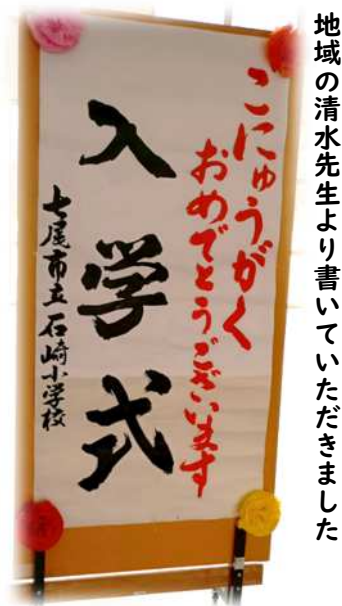 地域の清水先生より書いていただきました
ごにゅうがく
おめでとうございます
入学式
七尾市立石崎小学校